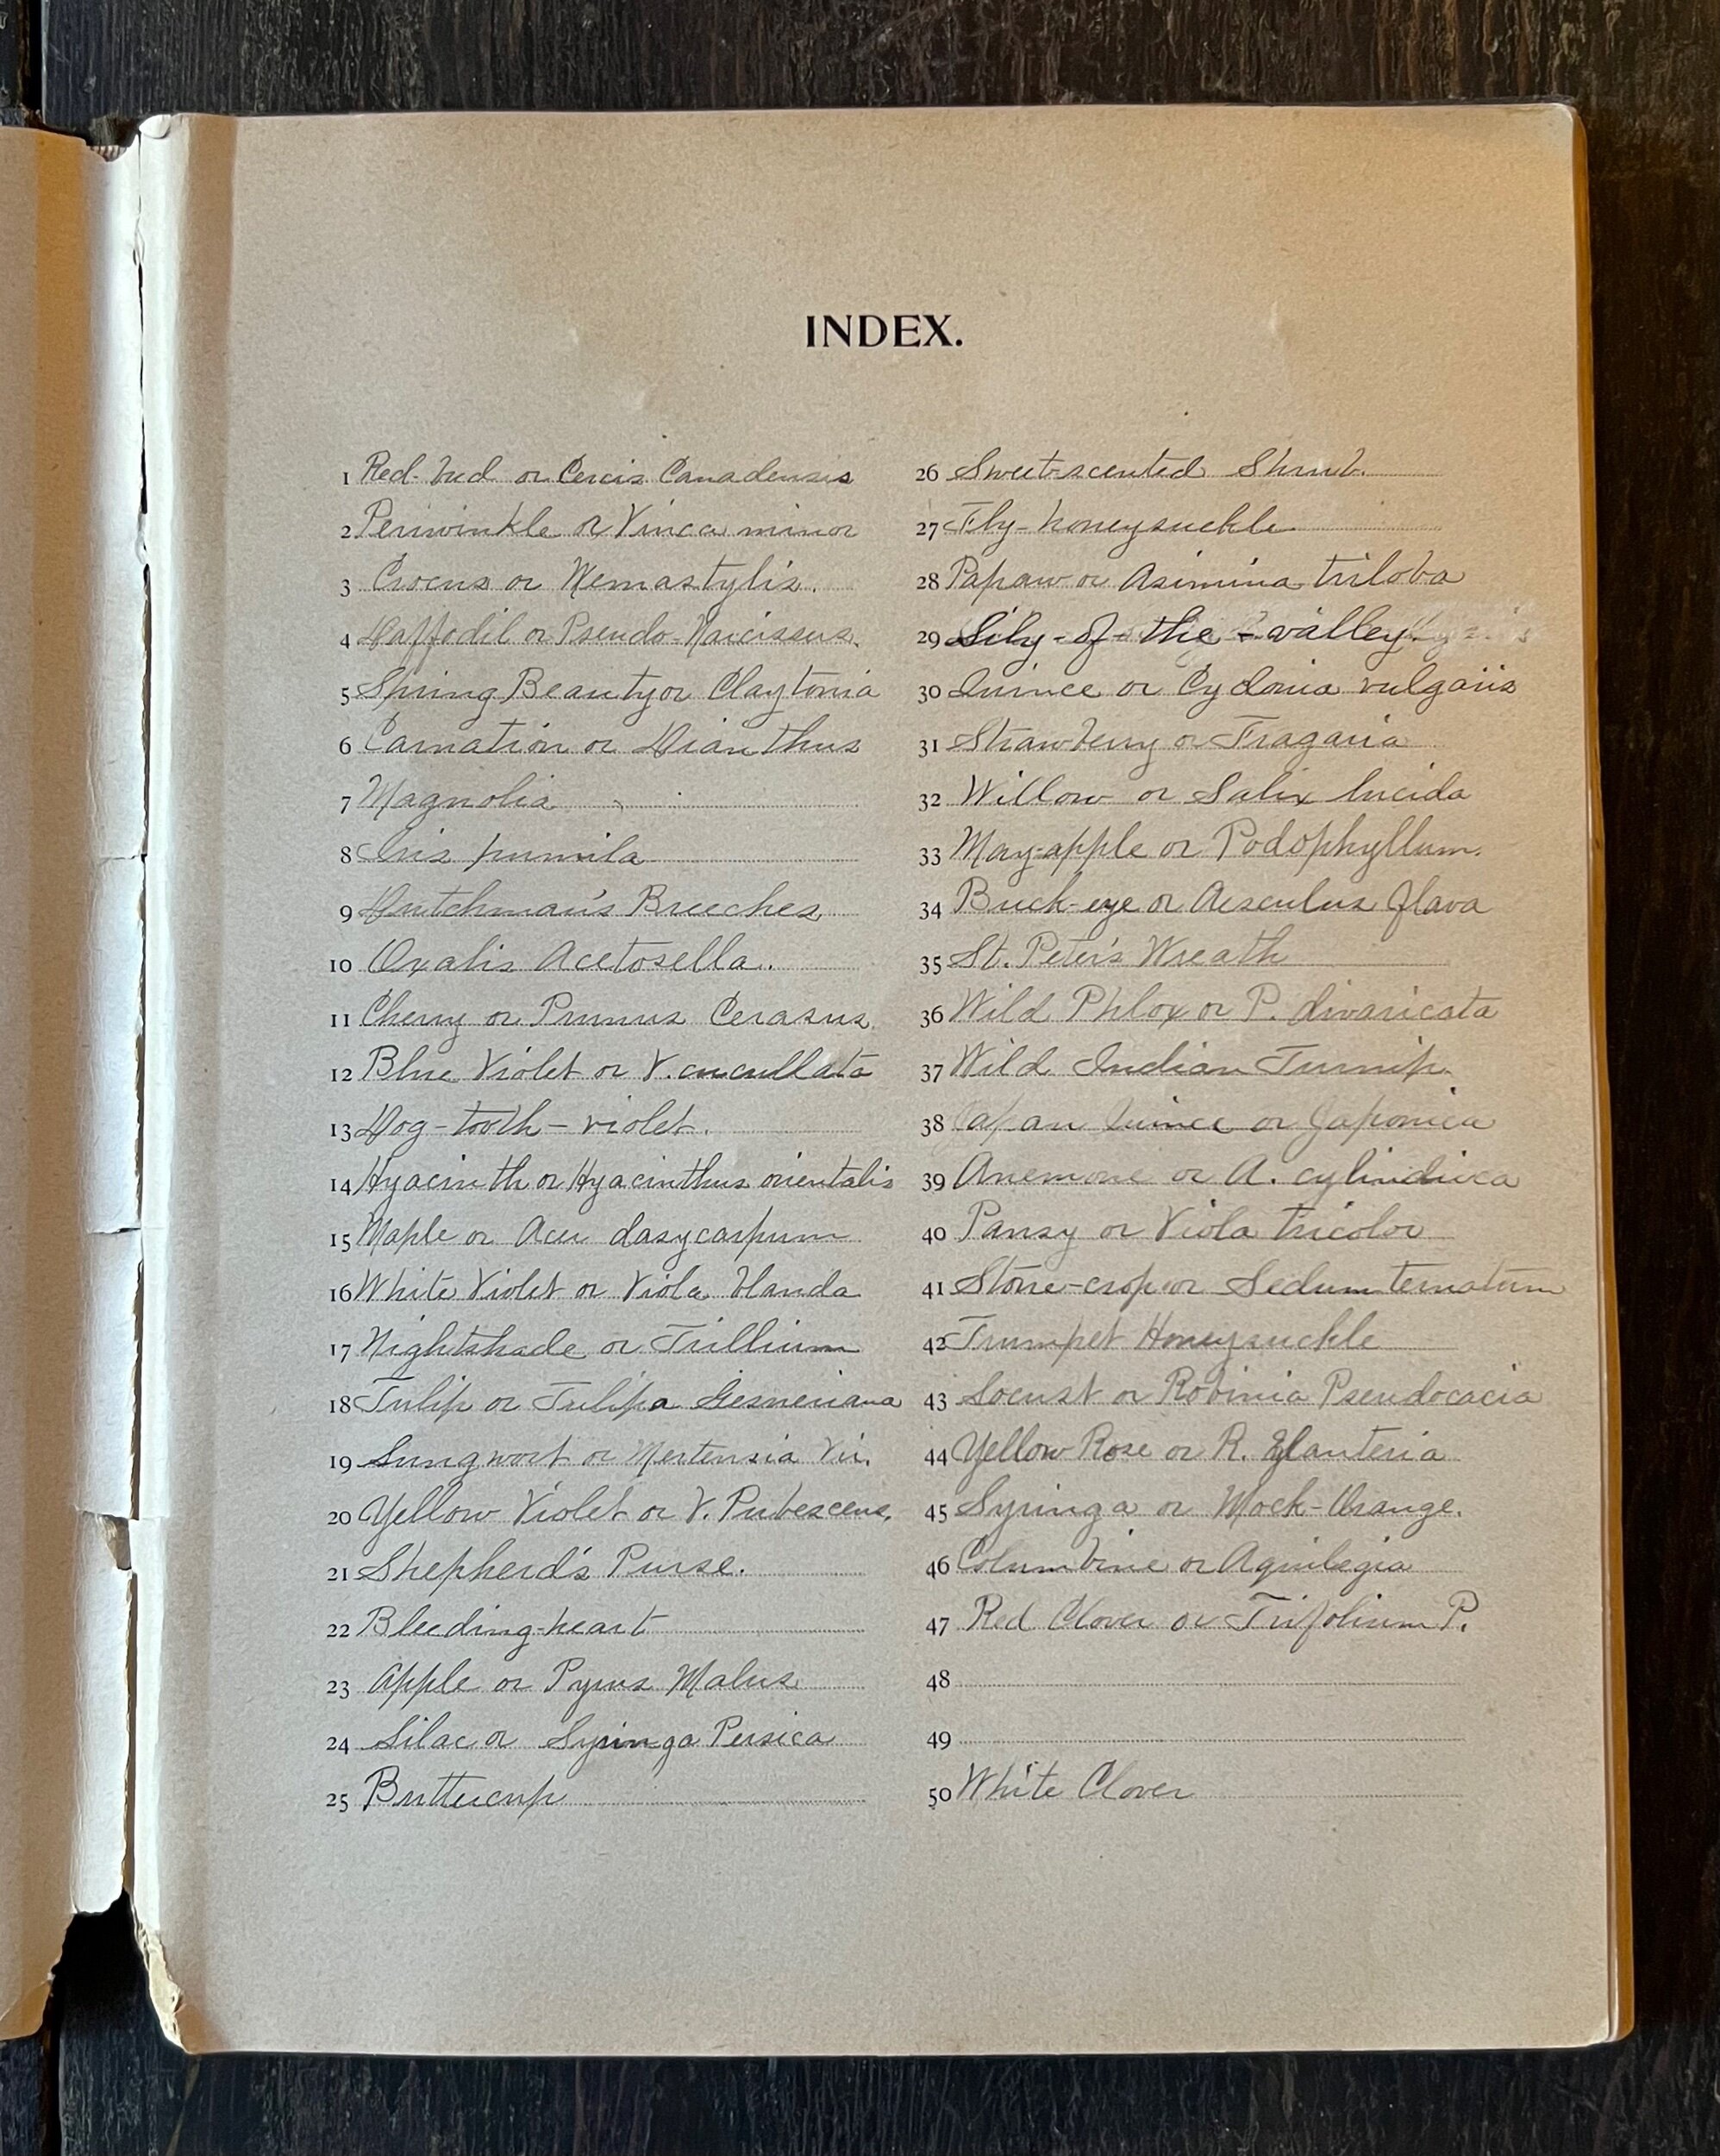 INDEX.
1 Red-bud or Cercis Canadensis
2 Periwinkle or Vinca minor
3 Crocus or Nemastylis.
4 Daffodil or Pseudo-Narcissus.
5 Spring Beauty or Claytonia
6 Carnation or Dianthus
7 Magnolia
8 Iris pumila
9 Dutchman's Breeches
10 Oxalis Acetosella.
11 Cherry or Prunus Cerasus
12 Blue Violet or V. cucullata
13 Dog-tooth-violet.
14 Hyacinth or Hyacinthus orientalis
15 Maple or Acer dasycarpum
16 White Violet or Viola blanda
17 Nightshade or Trillium
18 Tulip or Tulipa Gesneriana
19 Lungwort or Mertensia Vir.
20 Yellow Violet or V. Pubescens.
21 Shepherd's Purse.
22 Bleeding-heart
23 Apple or Pyrus Malus
24 Lilac or Syringa Persica
25 Buttercup
26 Sweet-scented Shrub.
27 Fly-honeysuckle.
28 Papaw or Asimina triloba
29 Lily-of-the-valley.
30 Quince or Cydonia vulgaris
31 Strawberry or Fragaria
32 Willow or Salix lucida
33 May-apple or Podophyllum.
34 Buck-eye or Aesculus flava
35 St. Peter's Wreath
36 Wild Phlox or P. divaricata
37 Wild Indian Turnip.
38 Japan Quince or Japonica
39 Anemone or A. cylindrica
40 Pansy or Viola tricolor
41 Stone-crop or Sedum ternatum
42 Trumpet Honeysuckle
43 Locust or Robinia Pseudocacia
44 Yellow Rose or R. Eglanteria
45 Syringa or Mock-Orange.
46 Columbine or Aquilegia
47 Red Clover or Trifolium P.
48
49
50 White Clover